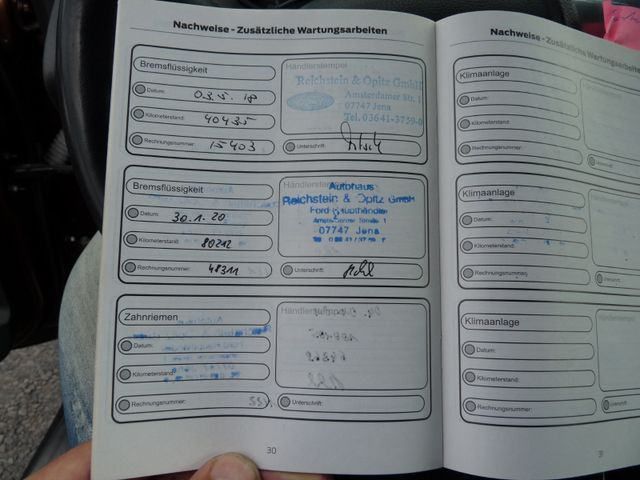 Nachweise - Zusätzliche Wartungsarbeiten
Bremsflüssigkeit
Datum: 03.5.18
Kilometerstand: 40435
Rechnungsnummer: 15403
Händlerstempel
Reichstein & Opitz GmbH
Amsterdamer Str. 1
07747 Jena
Tel. 03641-3759-0
Unterschrift:
Bremsflüssigkeit
Datum: 30.1.20
Kilometerstand: 80212
Rechnungsnummer: 48311
Autohaus
Reichstein & Opitz GmbH
Ford Haupthändler
Amsterdamer Straße 1
07747 Jena
Unterschrift:
Zahnriemen
Datum:
Kilometerstand:
Rechnungsnummer:
Händlerstempel
Unterschrift:
30
Nachweise - Zusätzliche Wartungsarbeiten
Klimaanlage
Datum:
Kilometerstand:
Rechnungsnummer:
Klimaanlage
Datum:
Kilometerstand:
Rechnungsnummer:
Klimaanlage
Datum:
Kilometerstand:
Rechnungsnummer: